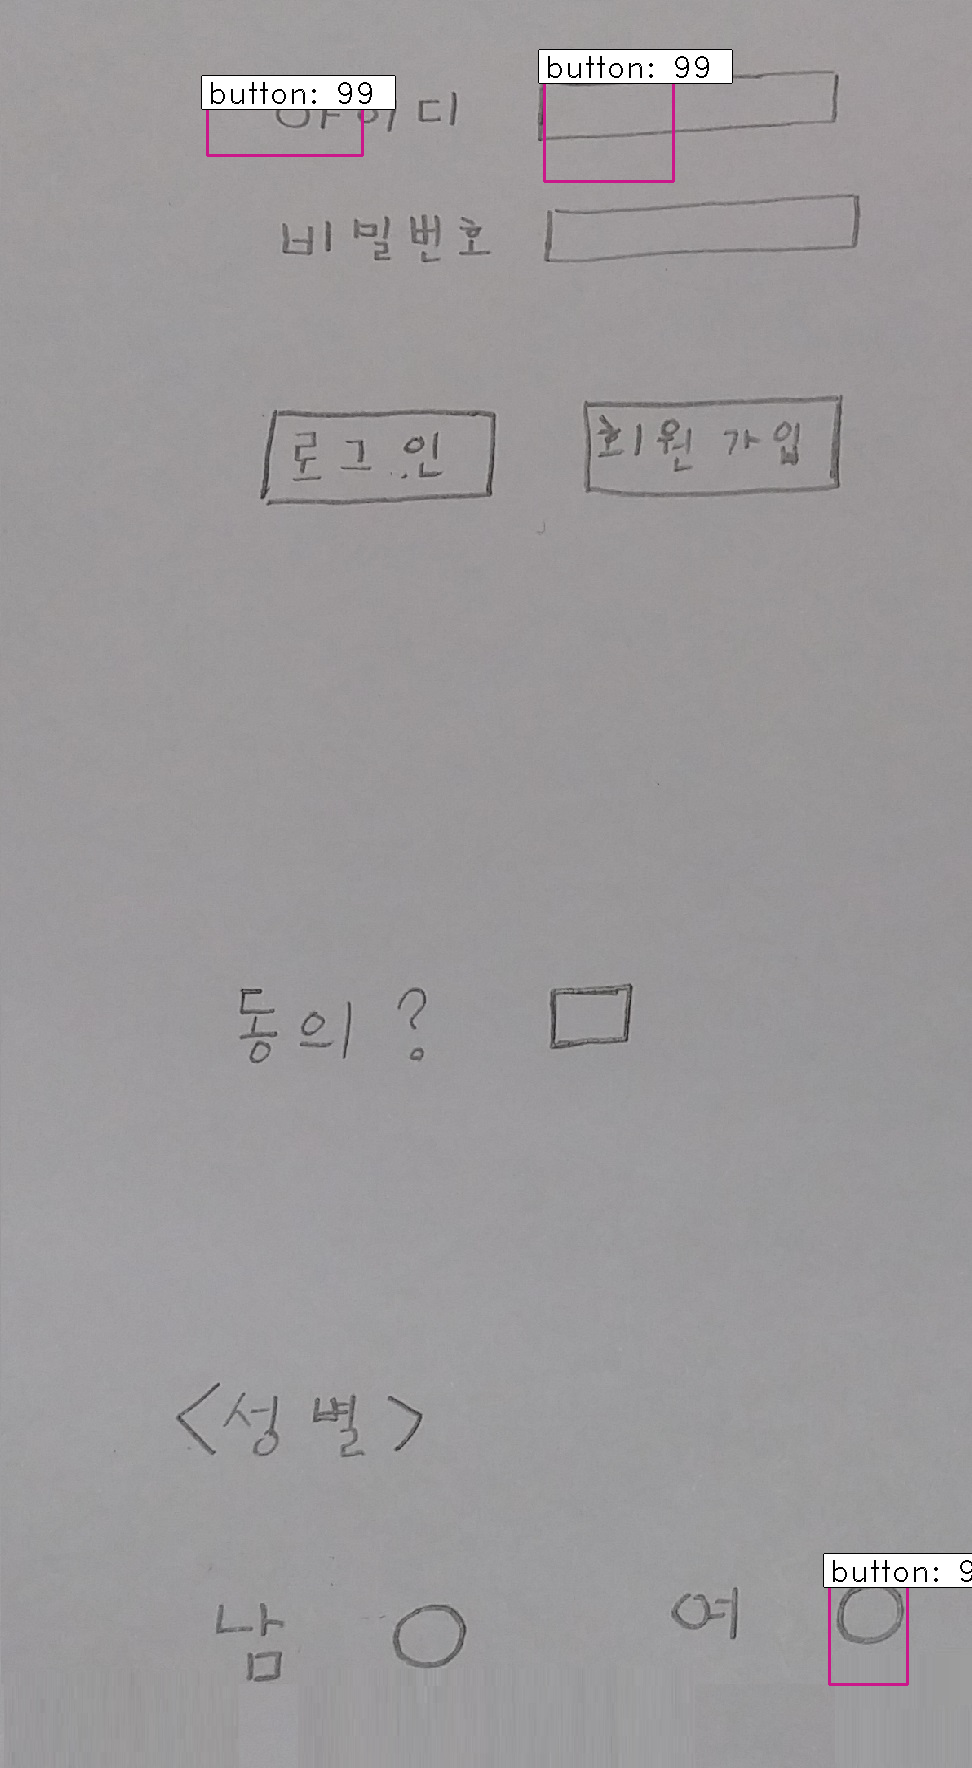 button: 99 button: 99
아이디
비밀번호
로그인 회원가입
동의?
<성별>
button: 9
남 여